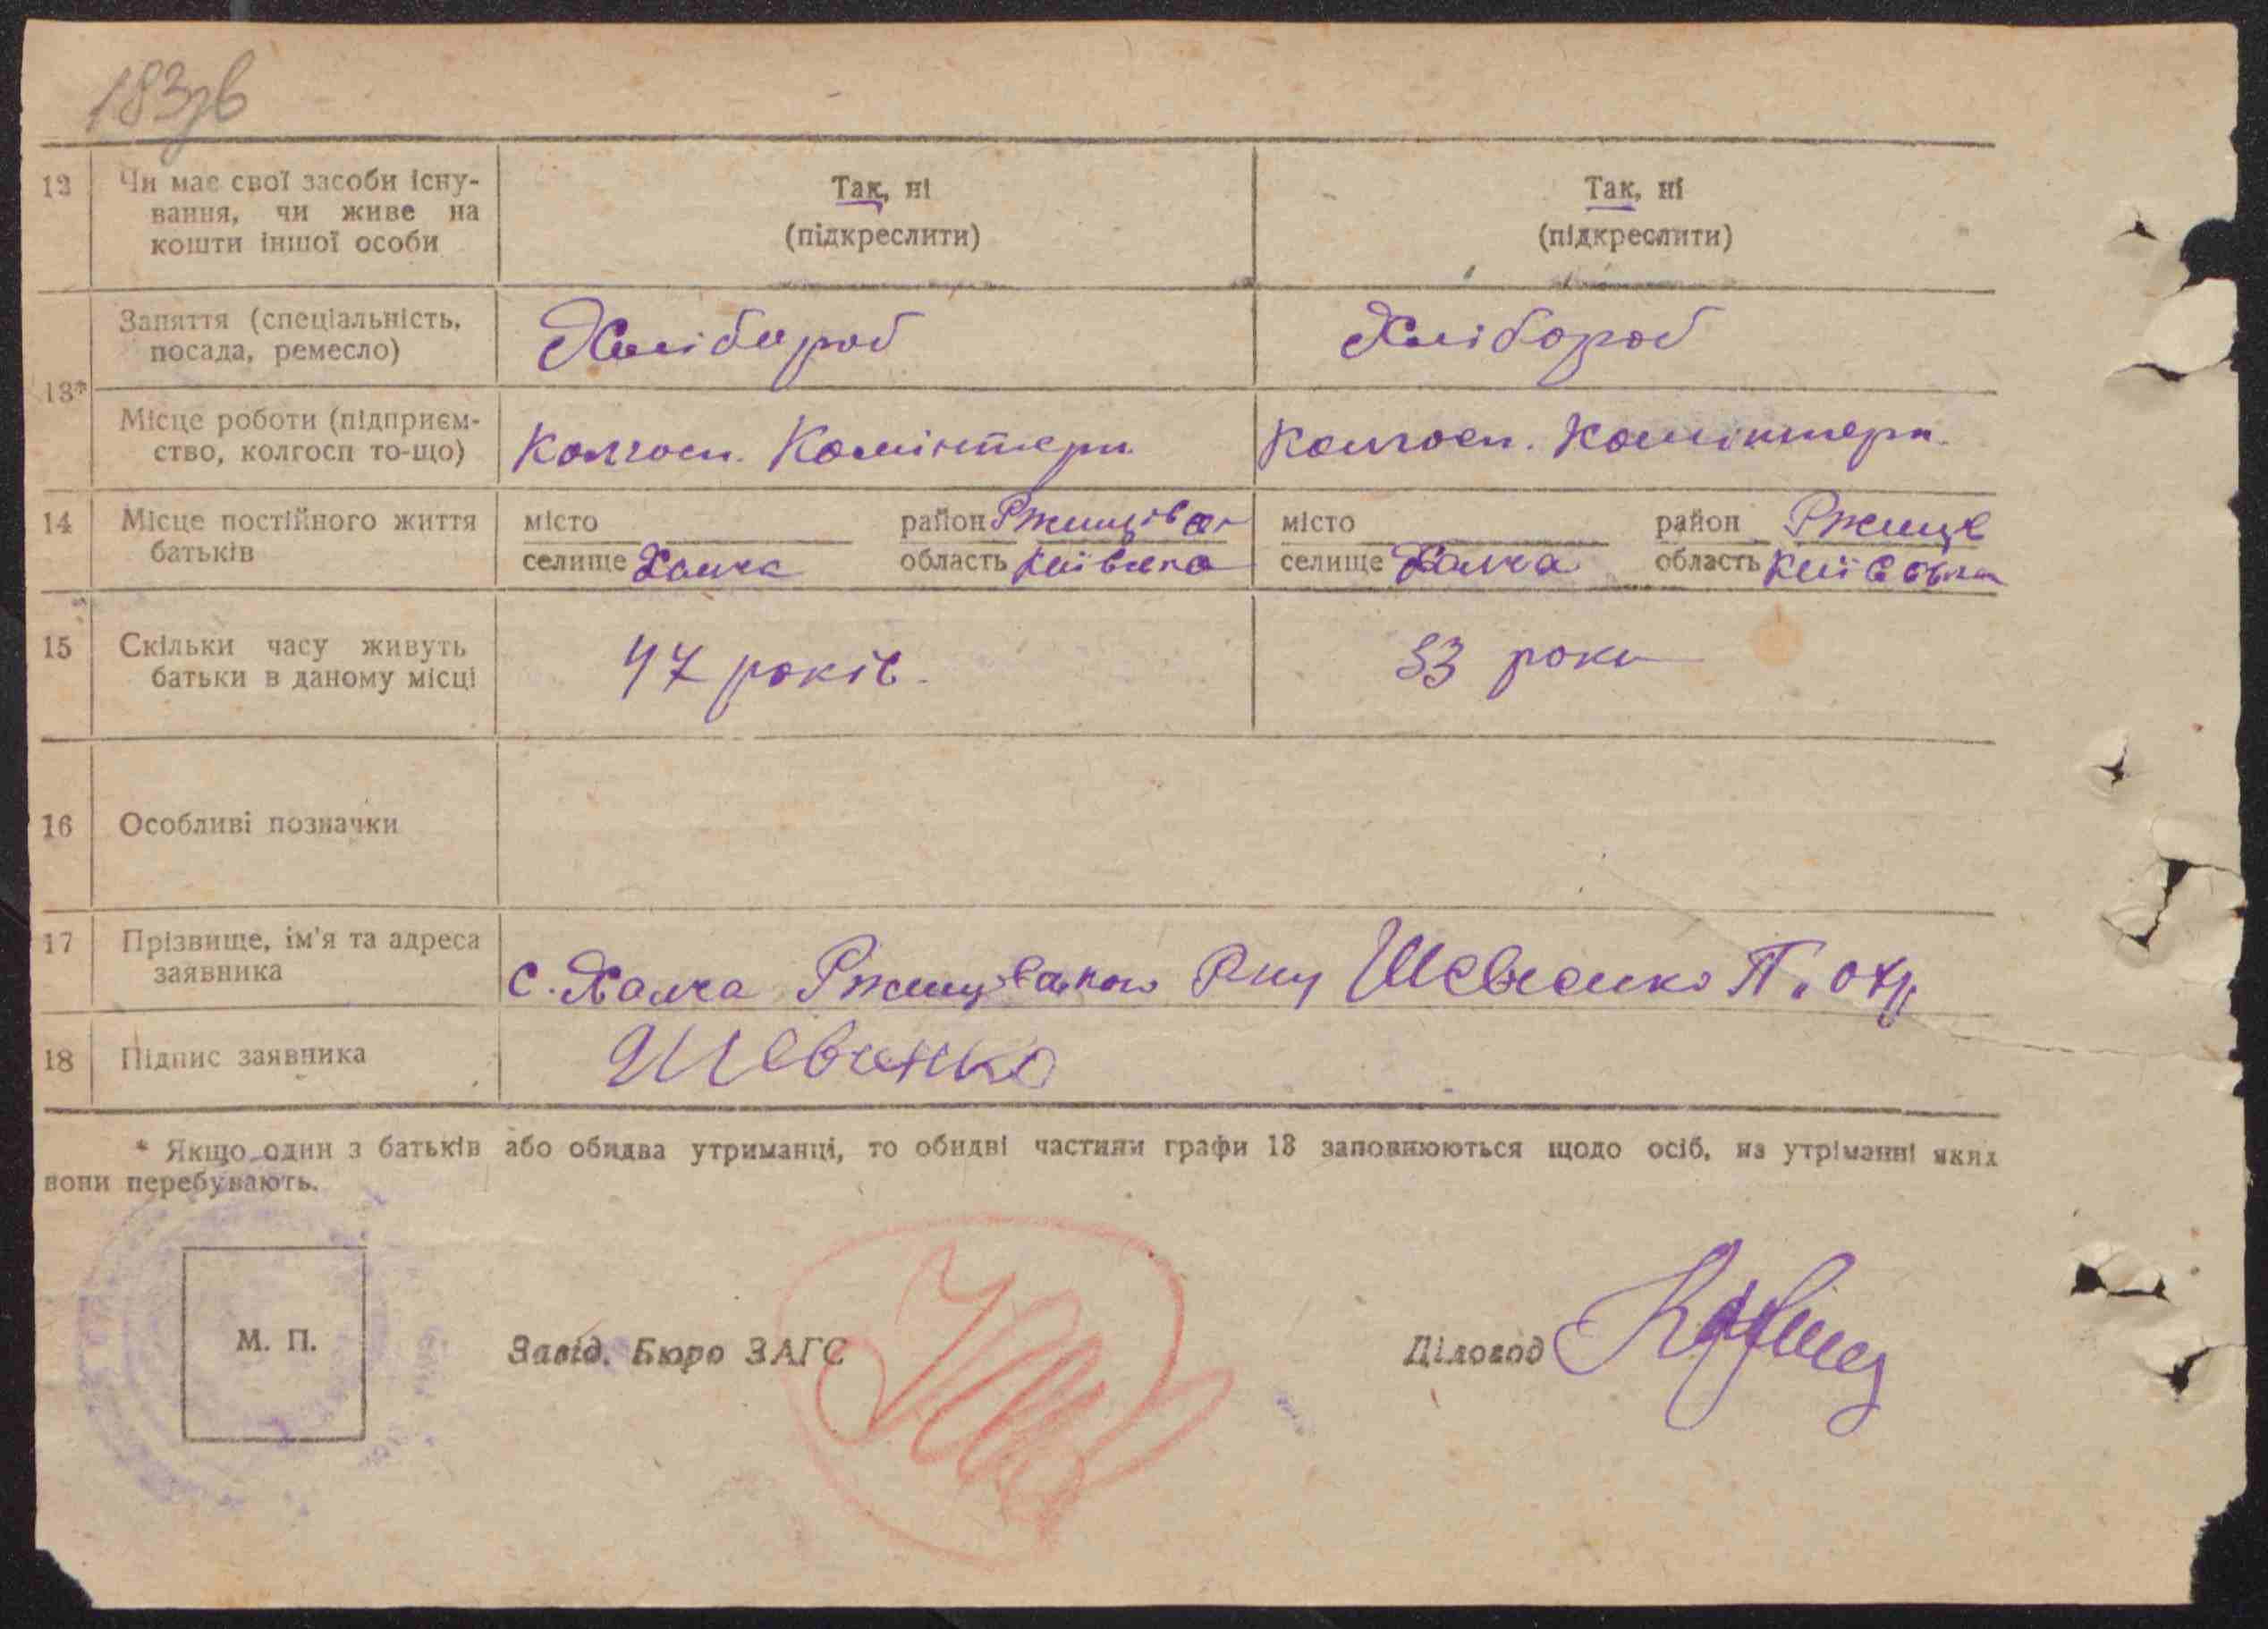 183зв
12 Чи має свої засоби існу-
вання, чи живе на
кошти іншої особи
Так, ні
(підкреслити)
Так, ні
(підкреслити)
13*
Заняття (спеціальність,
посада, ремесло)
Хлібороб
Хлібороб
Місце роботи (підприєм-
ство, колгосп то-що)
Колгосп. Комінтерн.
Колгосп. Комінтерн.
14 Місце постійного життя
батьків
місто район
селище Халча область Київська
місто район Ржищів
селище Халча область
15 Скільки часу живуть
батьки в даному місці
47 років.
33 роки
16 Особливі позначки
17 Прізвище, ім'я та адреса
заявника
с. Халча Шевченко П.
18 Підпис заявника
Шевченко
* Якщо один з батьків або обидва утриманці, то обидві частини графи 13 заповнюються щодо осіб, на утріманні яких
вони перебувають.
М. П.
Завід. Бюро ЗАГС
Діловод